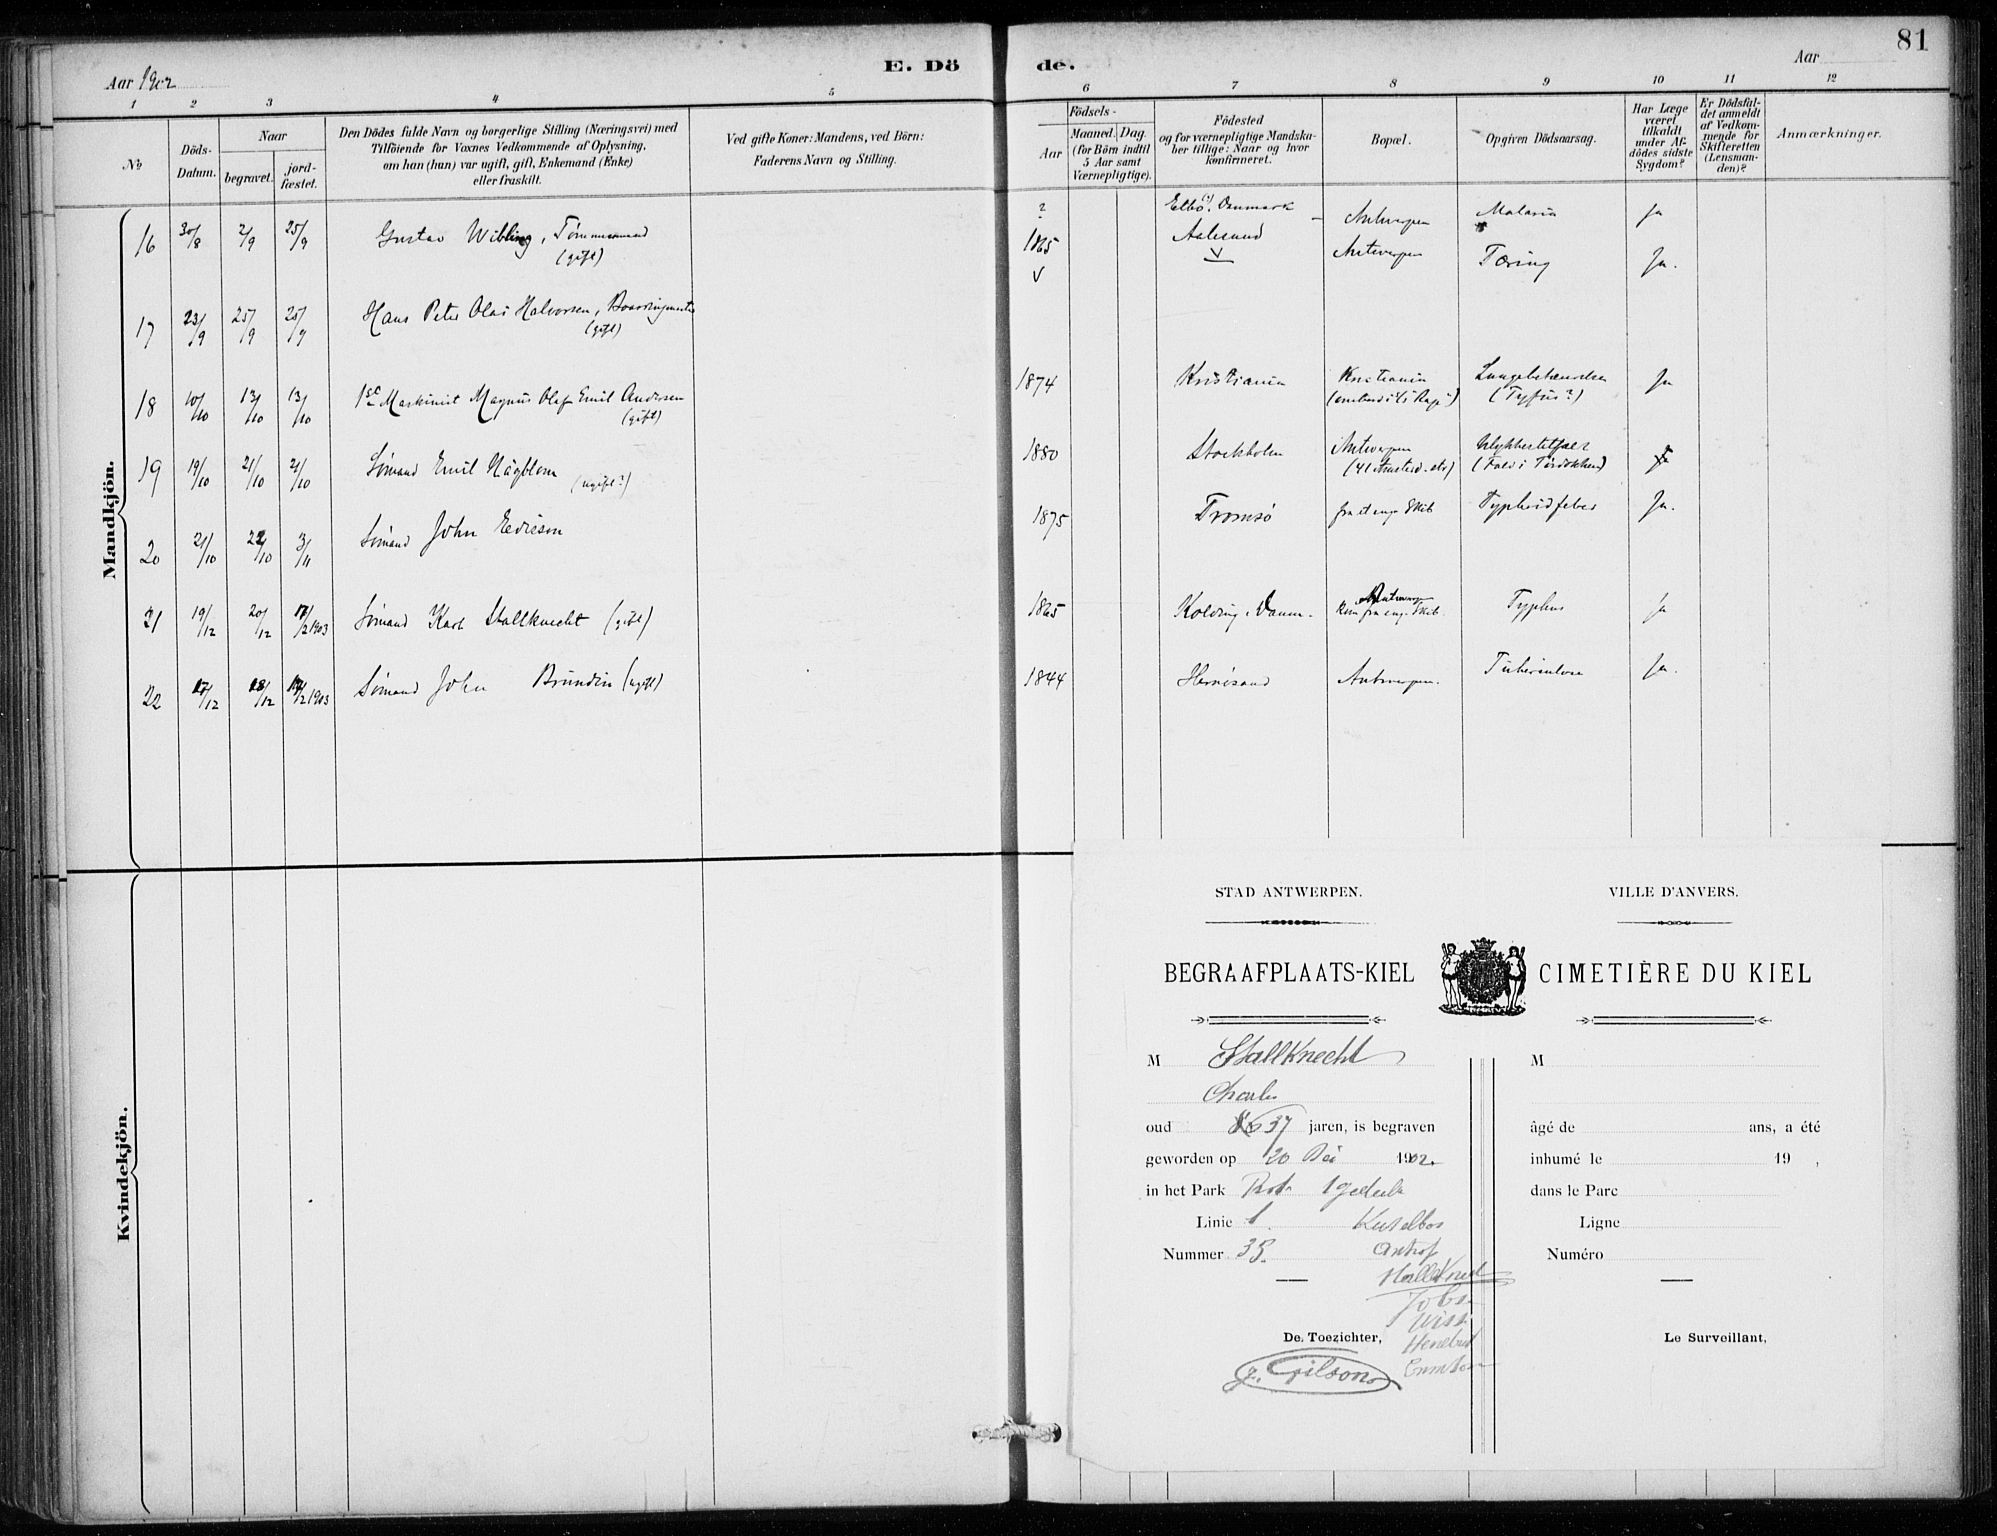 81
E. Dö de.
Aar 1902
Aar
1 2 3 4 5 6 7 8 9 10 11 12
No
Döds-Datum.
Naar
begravet. jord-fæstet.
Den Dödes fulde Navn og borgerlige Stilling (Næringsvei) med
Tilföiende for Voxnes Vedkommende af Oplysning,
om han (hun) var ugift, gift, Enkemand (Enke)
eller fraskilt.
Ved gifte Koner: Mandens, ved Börn:
Faderens Navn og Stilling.
Födsels-
Aar
Maaned. Dag.
(for Börn indtil
5 Aar samt
Værnepligtige).
Födested
og for værnepligtige Mandska-
ber tillige: Naar og hvor
konfirmeret.
Bopæl.
Opgiven Dödsaarsag.
Har Læge
været
tilkaldt
under Af-
dödes sidste
Sygdom?
Er Dödsfal-
det anmeldt
af Vedkom-
mende for
Skifteretten
(Lensman-
den)?
Anmærkninger.
Mandkjön.
16 30/8 2/9 25/9 Gustav Wibling, Tømmermand (gift) ? Danmark Antwerpen Malaria Ja
17 23/9 25/9 25/9 Hans Peter Olai Halvorsen, (gift) 1865 Aalesund Antwerpen Tæring Ja.
18 10/10 13/10 13/10 1ste Maskinist Magnus Olaf Emil Andersen (gift) 1874 Kristiania Kristiania (Tyfus?) Ja
19 19/10 21/10 21/10 Sømand Emil Hägblom (ugift?) 1880 Stockholm Antwerpen Ulykkestilfæl
20 21/10 22/10 3/11 Sømand John Ericson 1875 Tromsø fra et eng. Skib Typhoidfeber Ja.
21 19/12 20/12 17/2 1903 Sømand Karl Stallknecht (gift) 1865 Kolding, Danm. Antwerpen
fra eng. Skib. Typhus Ja
22 17/12 18/12 17/2 1903 Sømand John Brundin (ugift) 1844 Hernösand Antwerpen. Tuberculose Ja.
Kvindekjön.
STAD ANTWERPEN.
VILLE D'ANVERS.
BEGRAAFPLAATS-KIEL
CIMETIÈRE DU KIEL
M Stallknecht
Charles
oud 37 jaren, is begraven
geworden op 20 1902.
in het Park
Linie 1
Nummer 35.
De Toezichter,
J. Gilson
M
âgé de ans, a été
inhumé le 19 ,
dans le Parc
Ligne
Numéro
Le Surveillant,